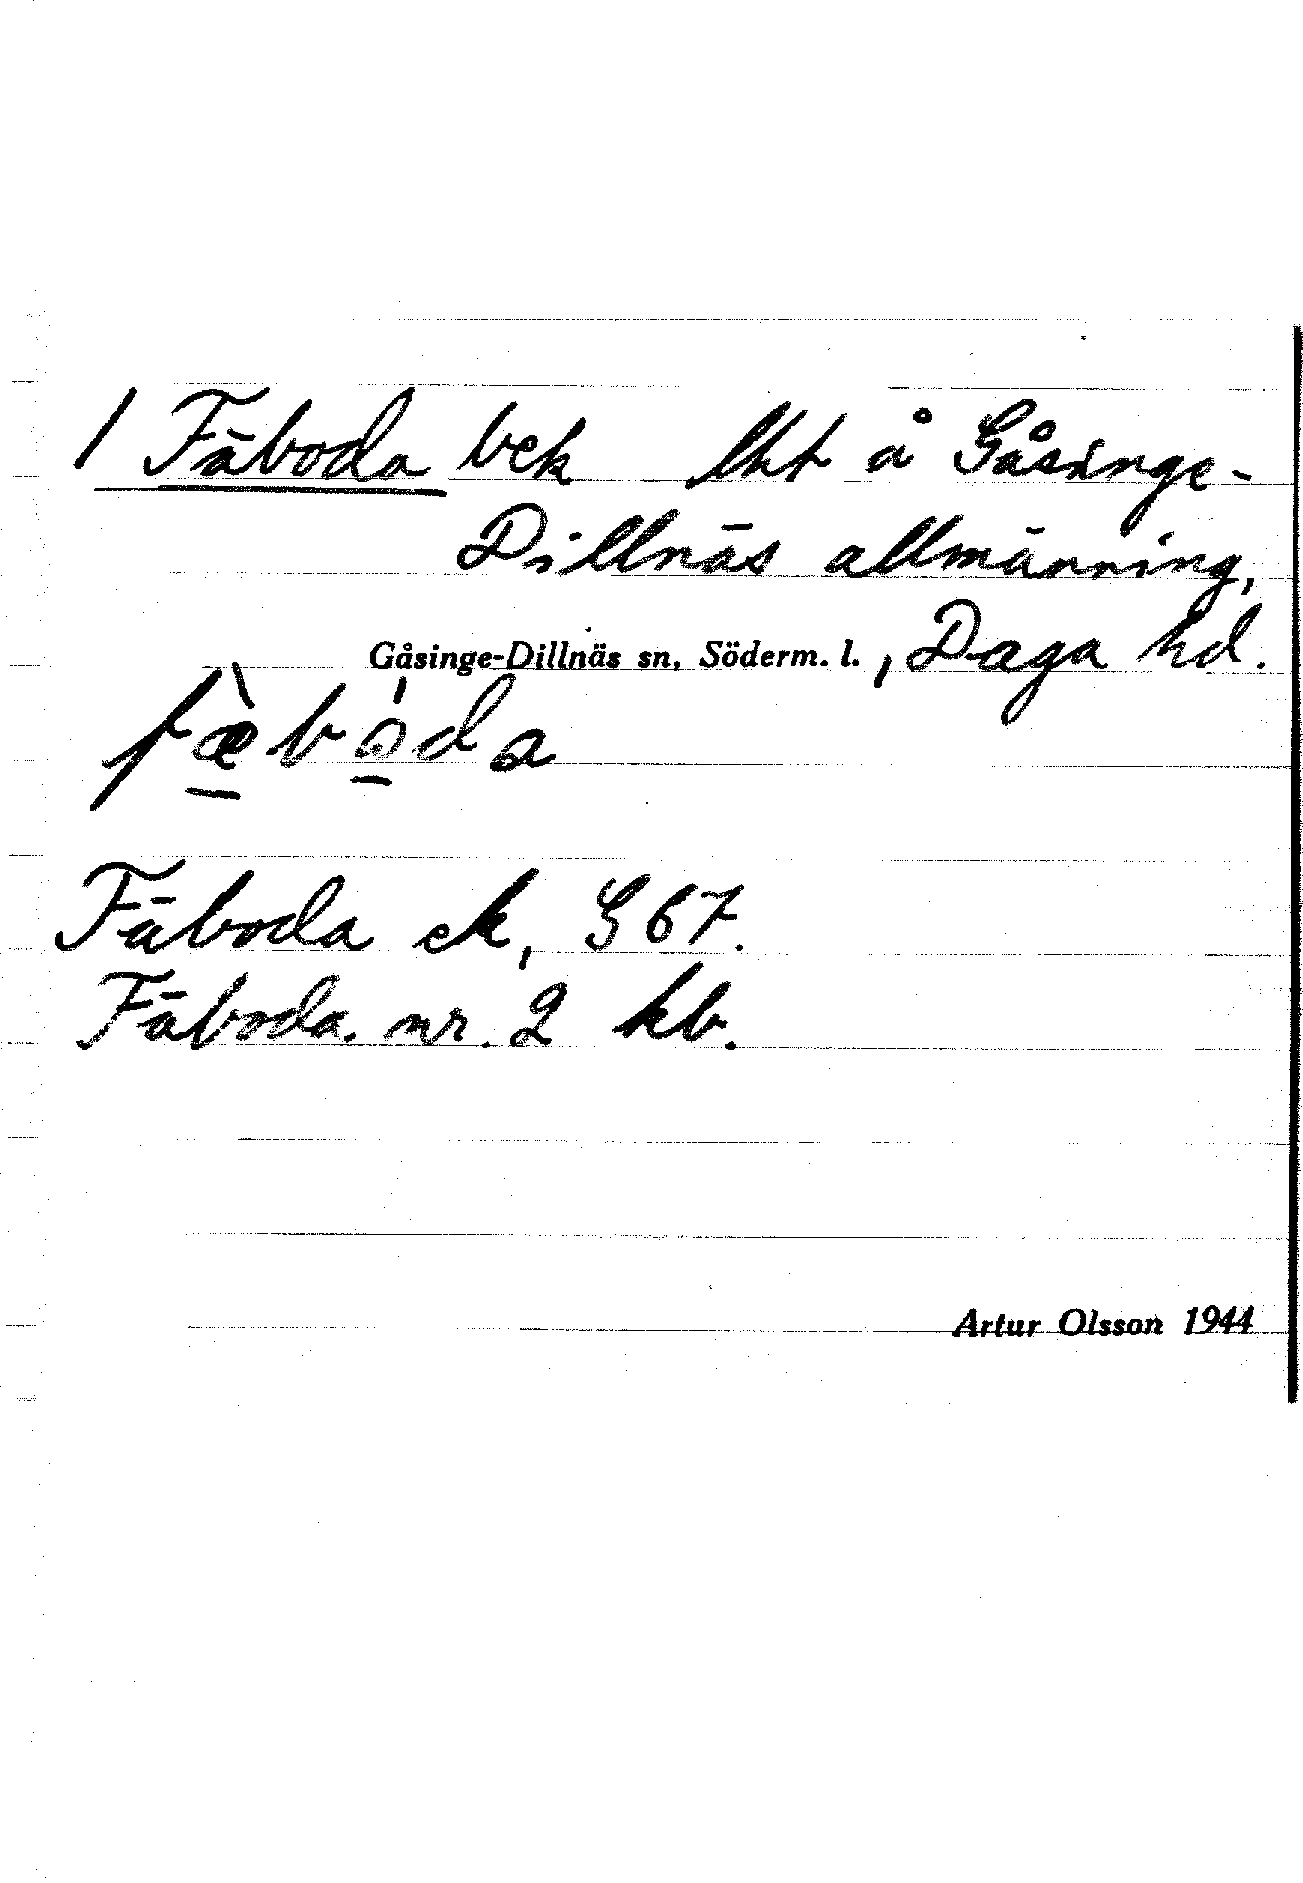 / Fäboda bek lht å Gåsinge-
Dillnäs allmänning,
Gåsinge-Dillnäs sn, Söderm. l., Daga hd.
fæ̀bóda
Fäboda ek, G 67.
Fäboda. nr. 2 kb.
Artur Olsson 1944